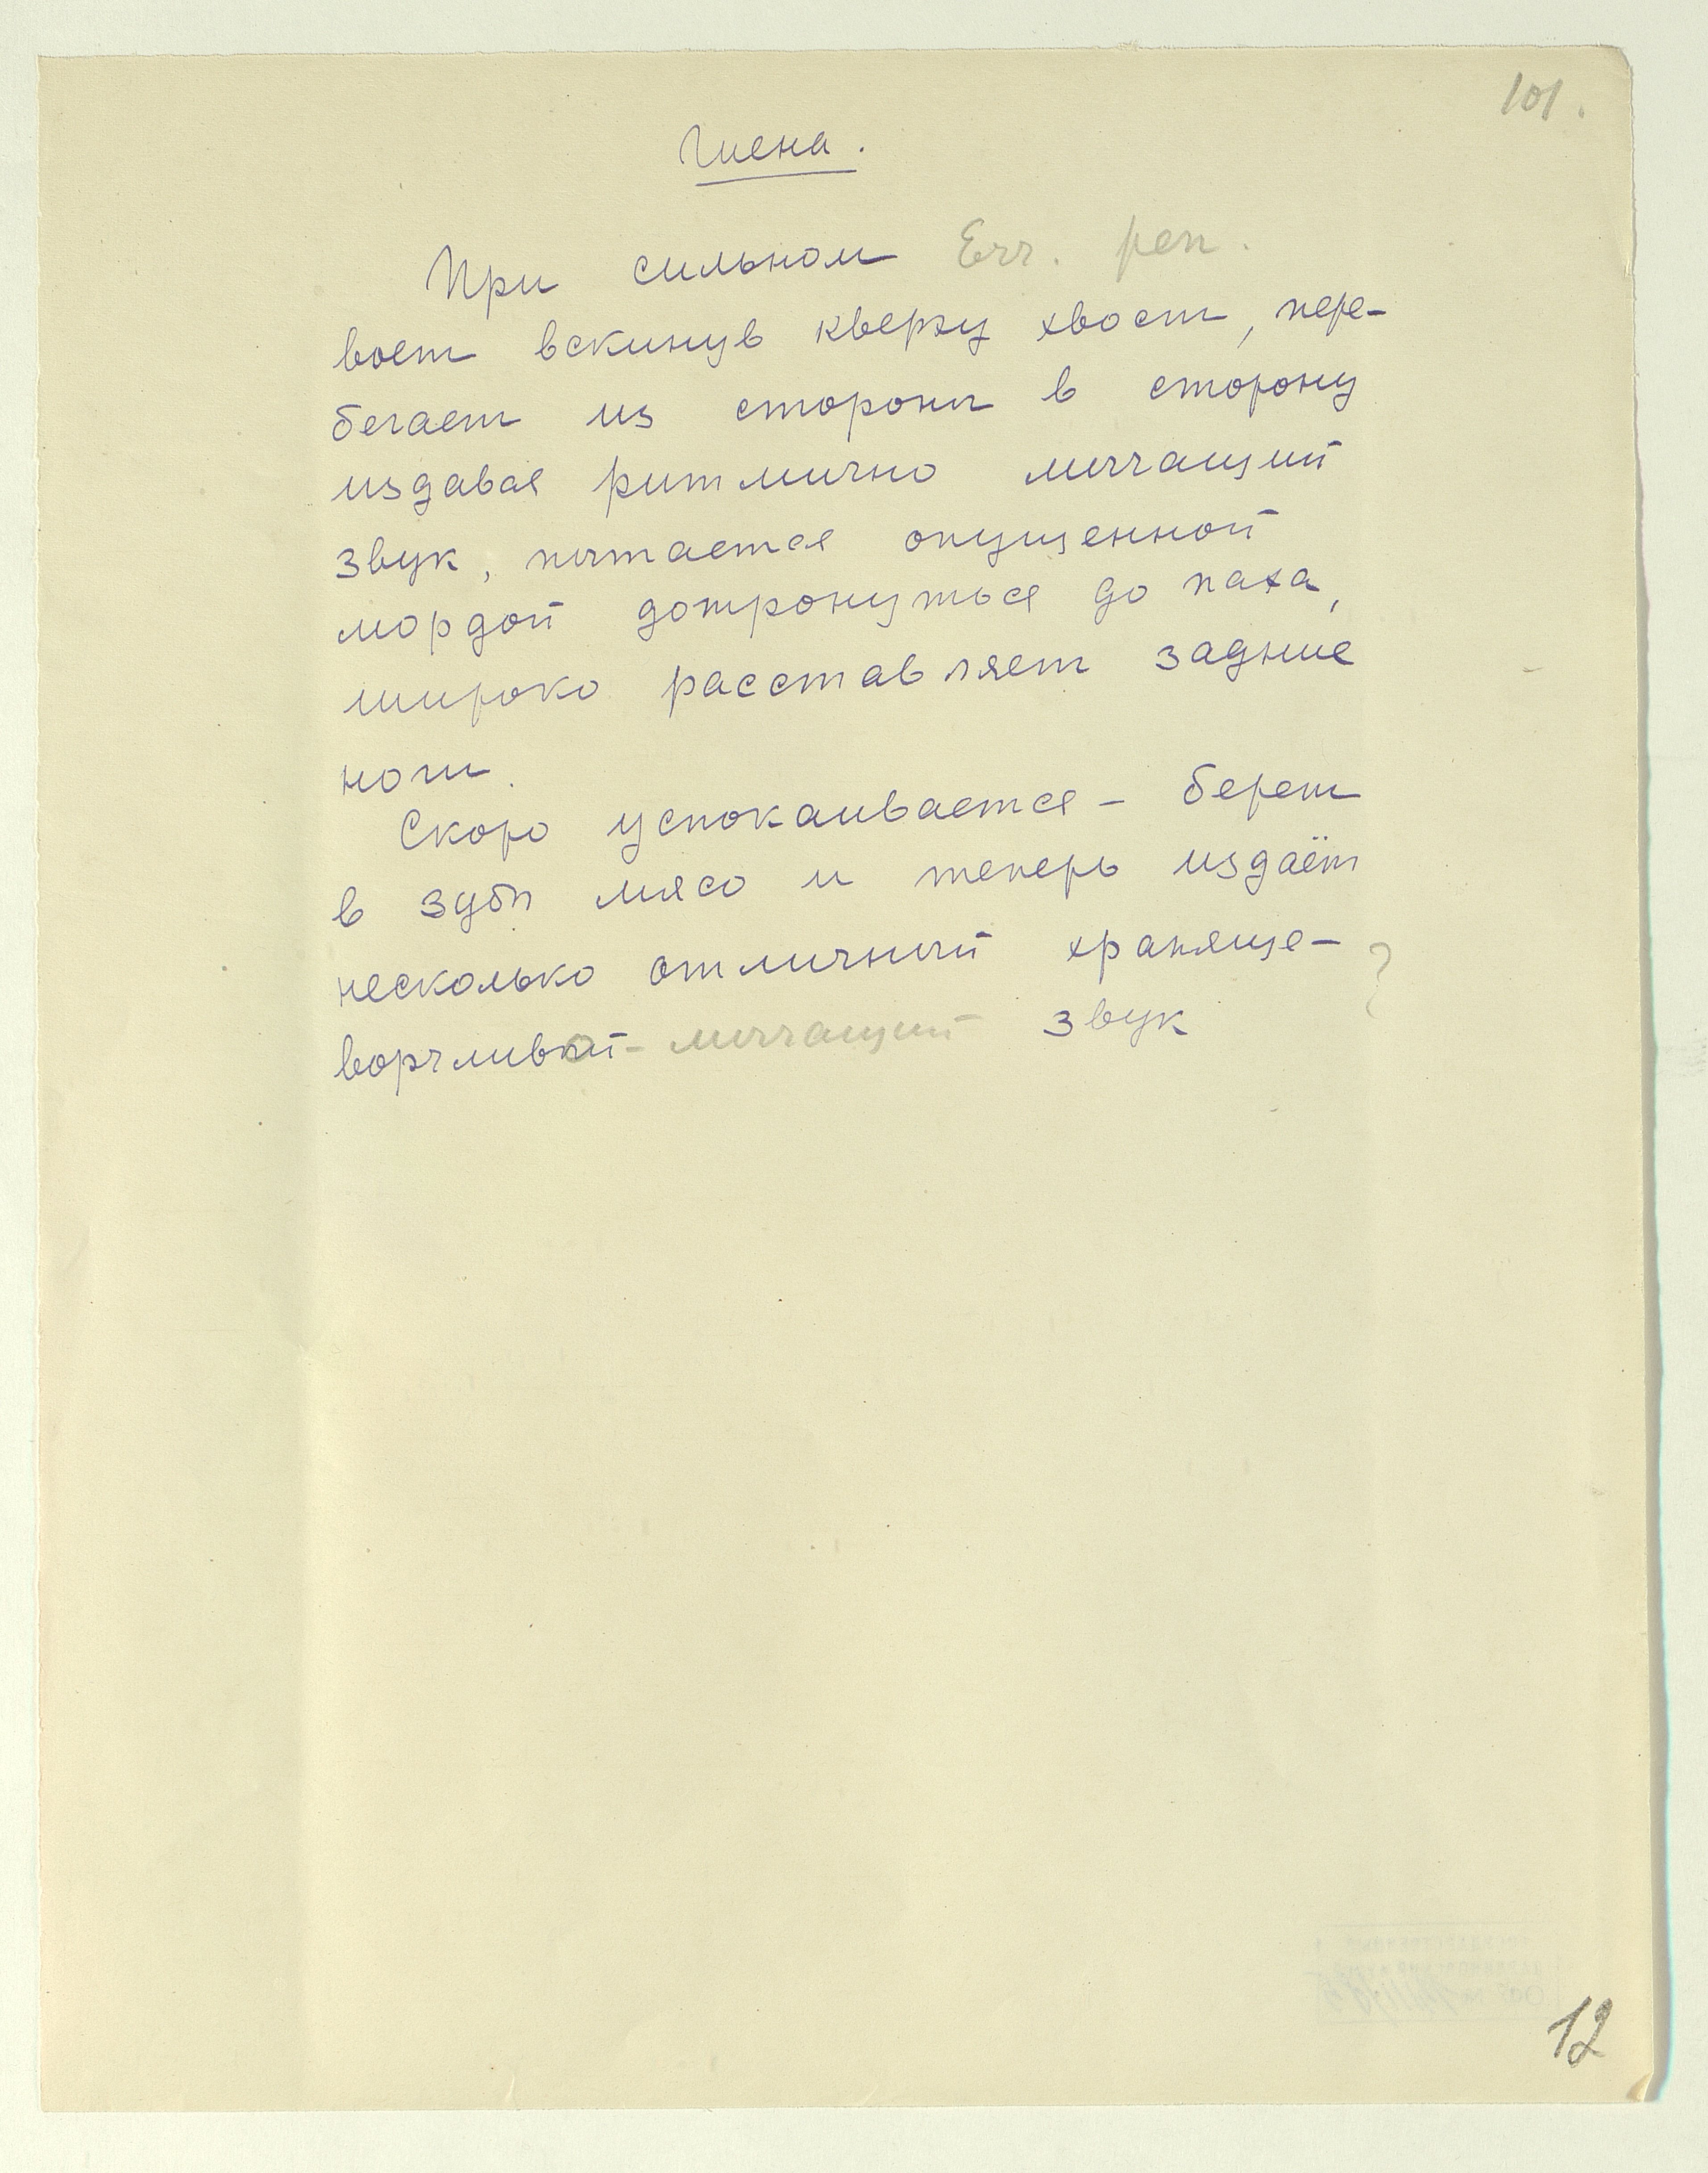 101.
Гиена.
При сильном Err. pen.
воет вскинув кверху хвост, пере-
бегает из стороны в сторону
издавая ритмично мычащий
звук, пытается опущенной
мордой дотронуться до паха,
широко расставляет задние
ноги.
Скоро успокаивается – берет
в зубы мясо и теперь издаёт
несколько отличный храпяще-
ворчливо - мычащий звук
12